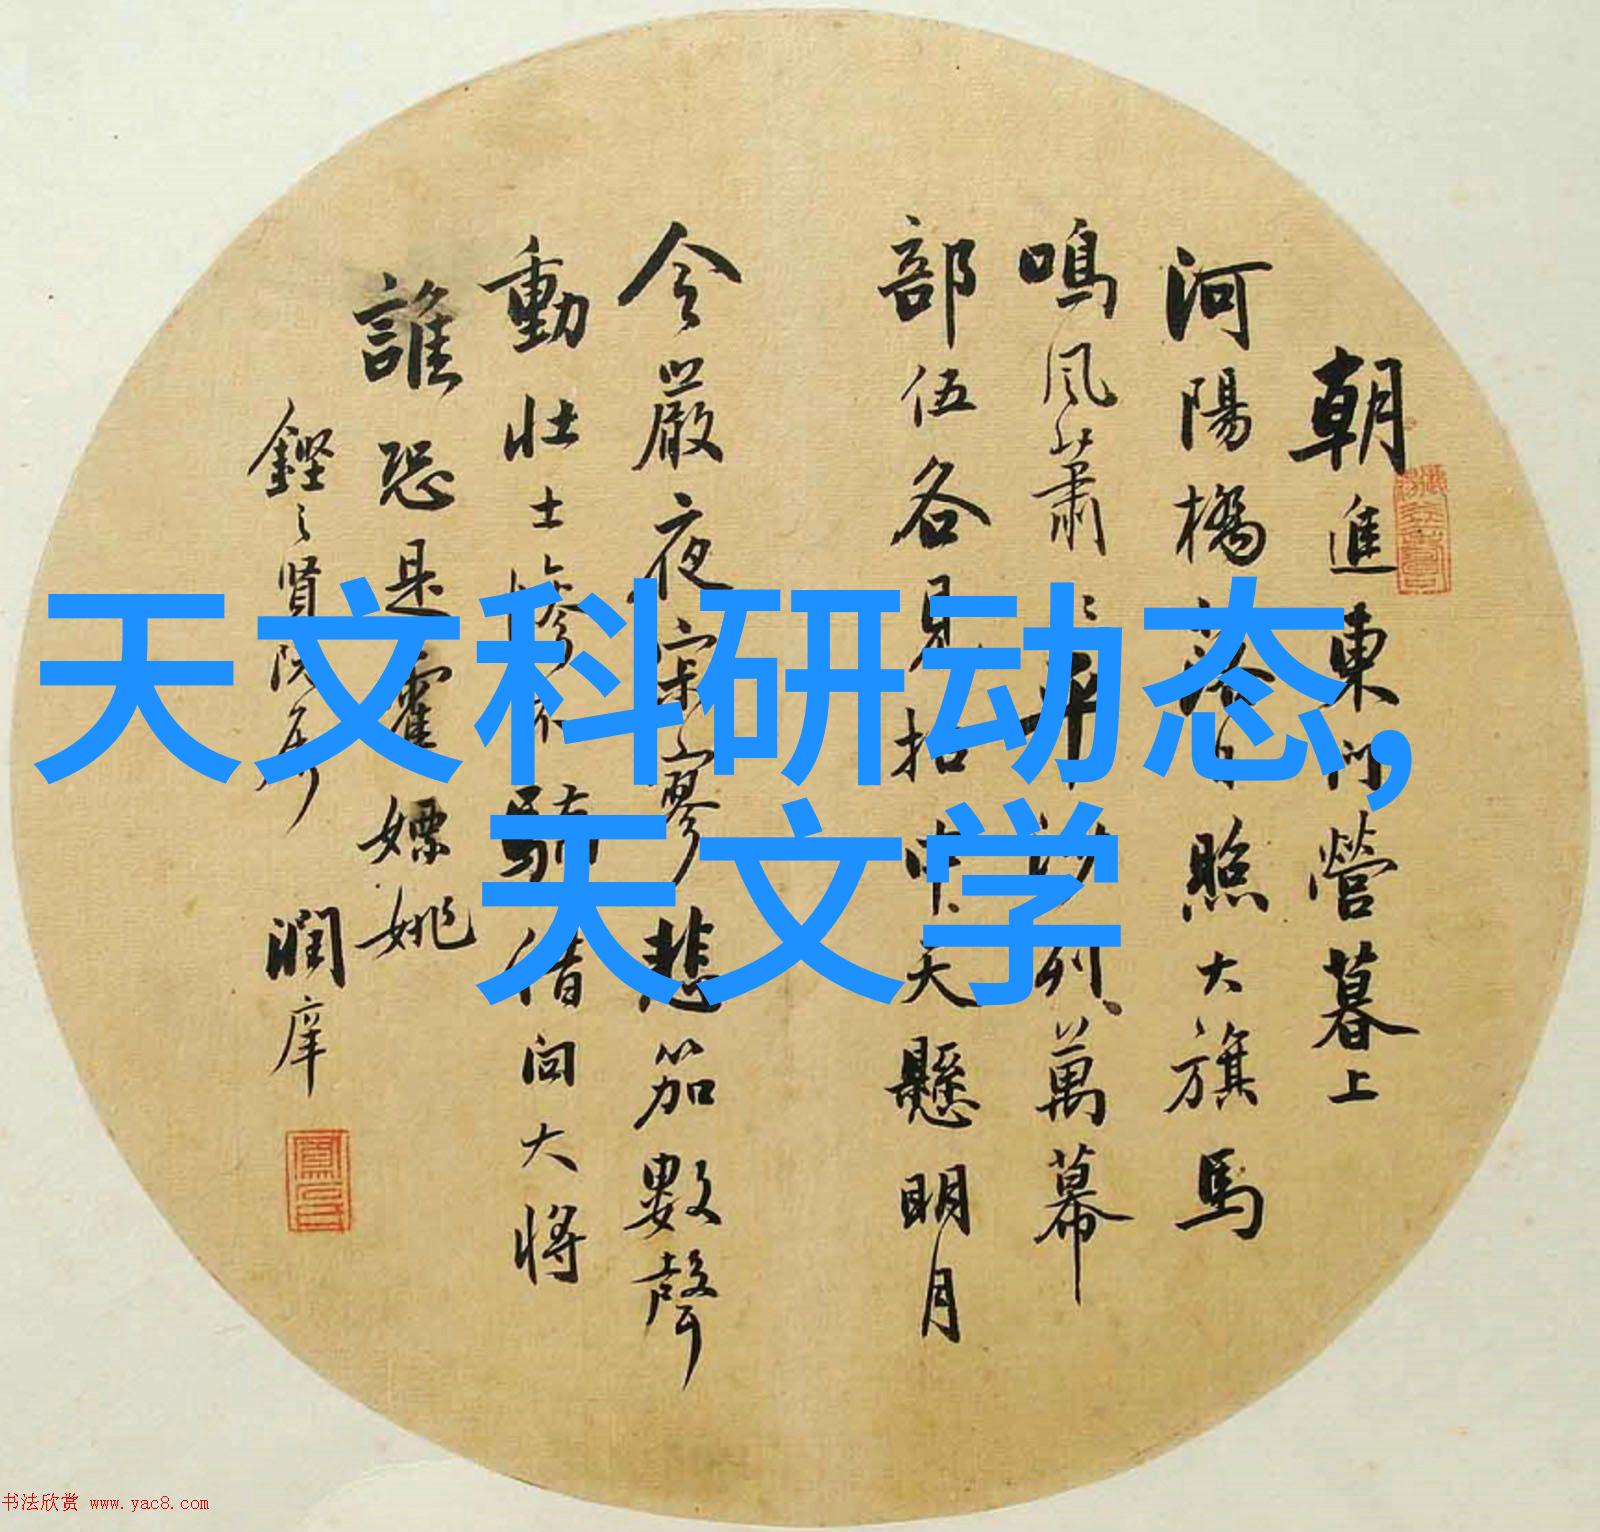 天文科研动态,
天文学
朝進東门營暮上
河陽橋落日照大旗馬
鳴風蕭〻平沙列萬幕
部伍各見招中天懸明月
令嚴夜寂寥悲笳數聲
動壯士慘不驕借问大將
誰恐是霍嫖姚
賢阮
潤庠
书法欣赏 www.yac8.com